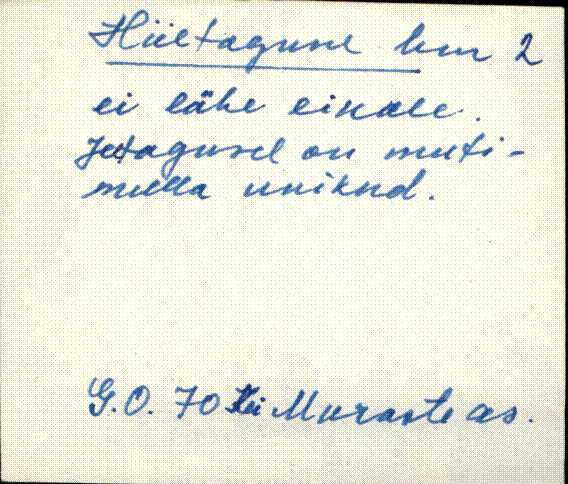 Hiietaguse kur 2
ei lähe eikale.
Jutagusel on muti-
mulla unikud.
G.O. 70 Kei Muraste as.